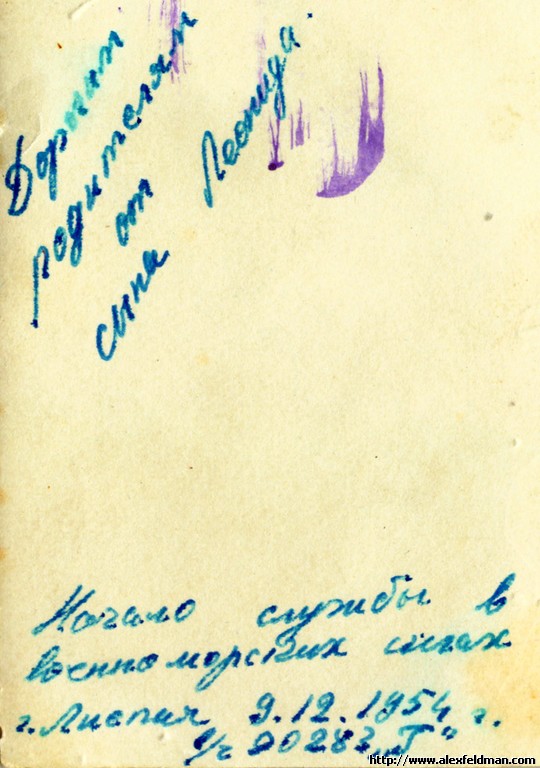 Дорогим
родителям
от
сына Леонида.
Начало службы в
военноморских силах
г. Лиепая 9.12.1954 г.
в/ч 90283 „Г“
http://www.alexfeldman.com